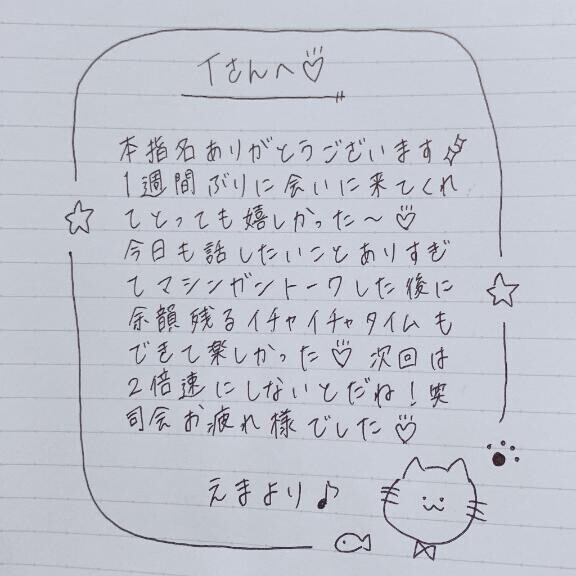 Tさんへ♡
本指名ありがとうございます✨
1週間ぶりに会いに来てくれ
てとっても嬉しかった〜♡
今日も話したいことありすぎ
てマシンガントークした後に
余韻残るイチャイチャタイムも
できて楽しかった♡ 次回は
2倍速にしないとだね!笑
司会お疲れ様でした♡
えまより♪